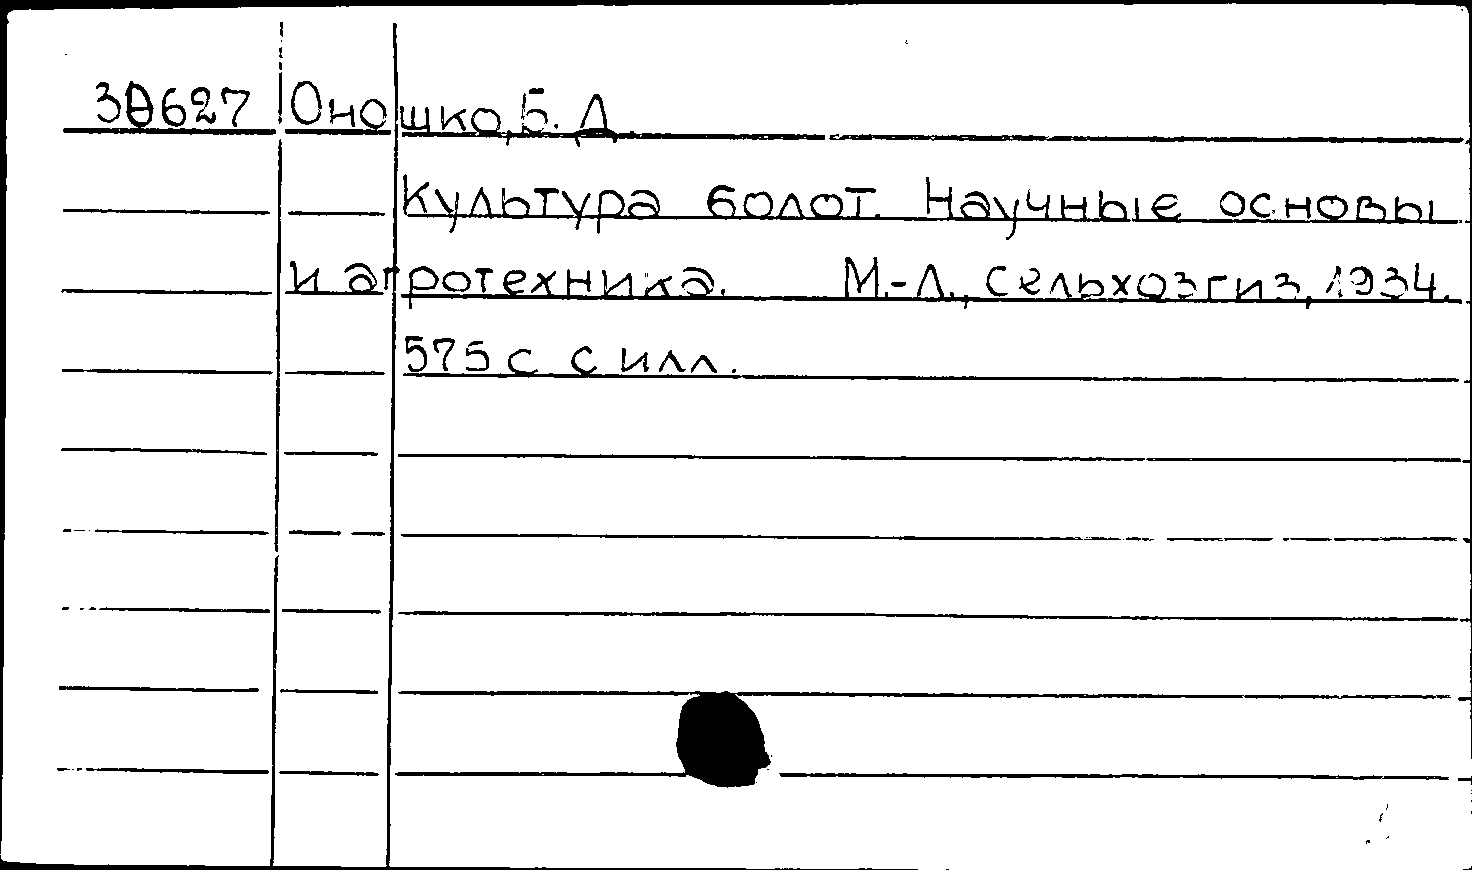 30627 Оношко, Б. Д
Культура болот. Научные основы
и агротехника. М.-Л., Сельхозгиз, 1934.
575 с с илл.